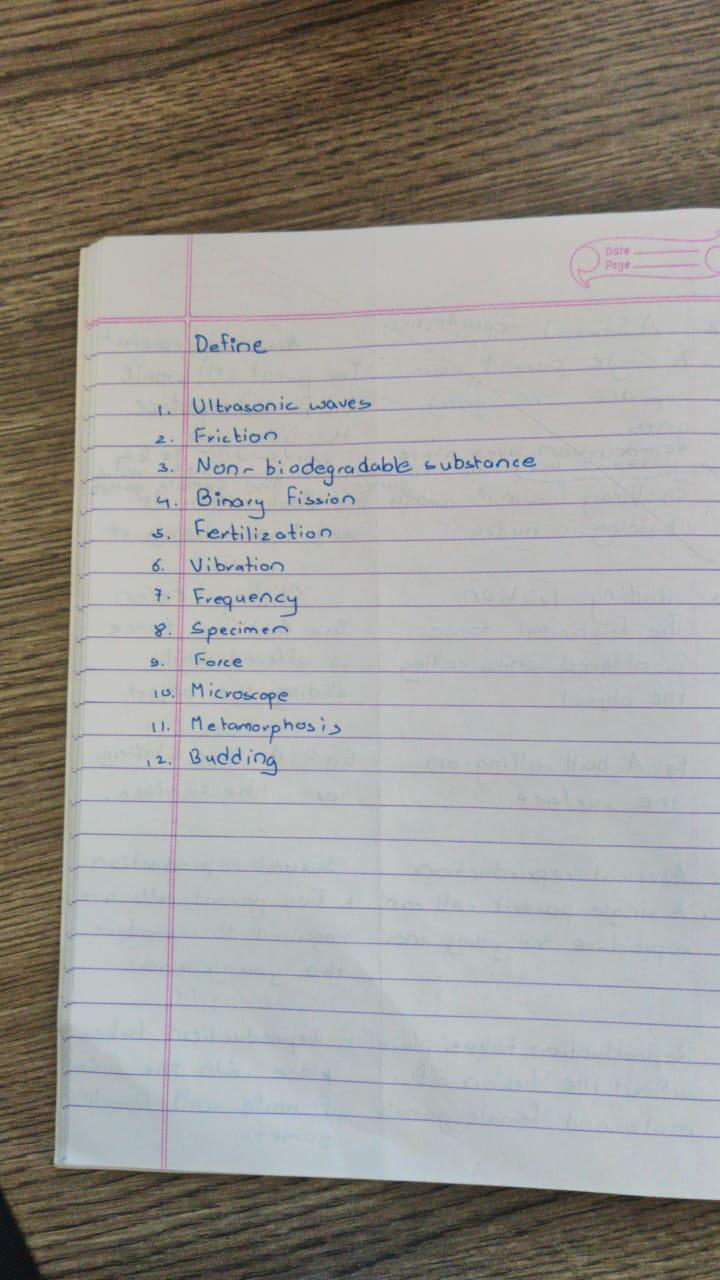 Date
Page
Define
1. Ultrasonic waves
2. Friction
3. Non-biodegradable substance
4. Binary fission
5. Fertilization
6. Vibration
7. Frequency
8. Specimen
9. Force
10. Microscope
11. Metamorphosis
12. Budding